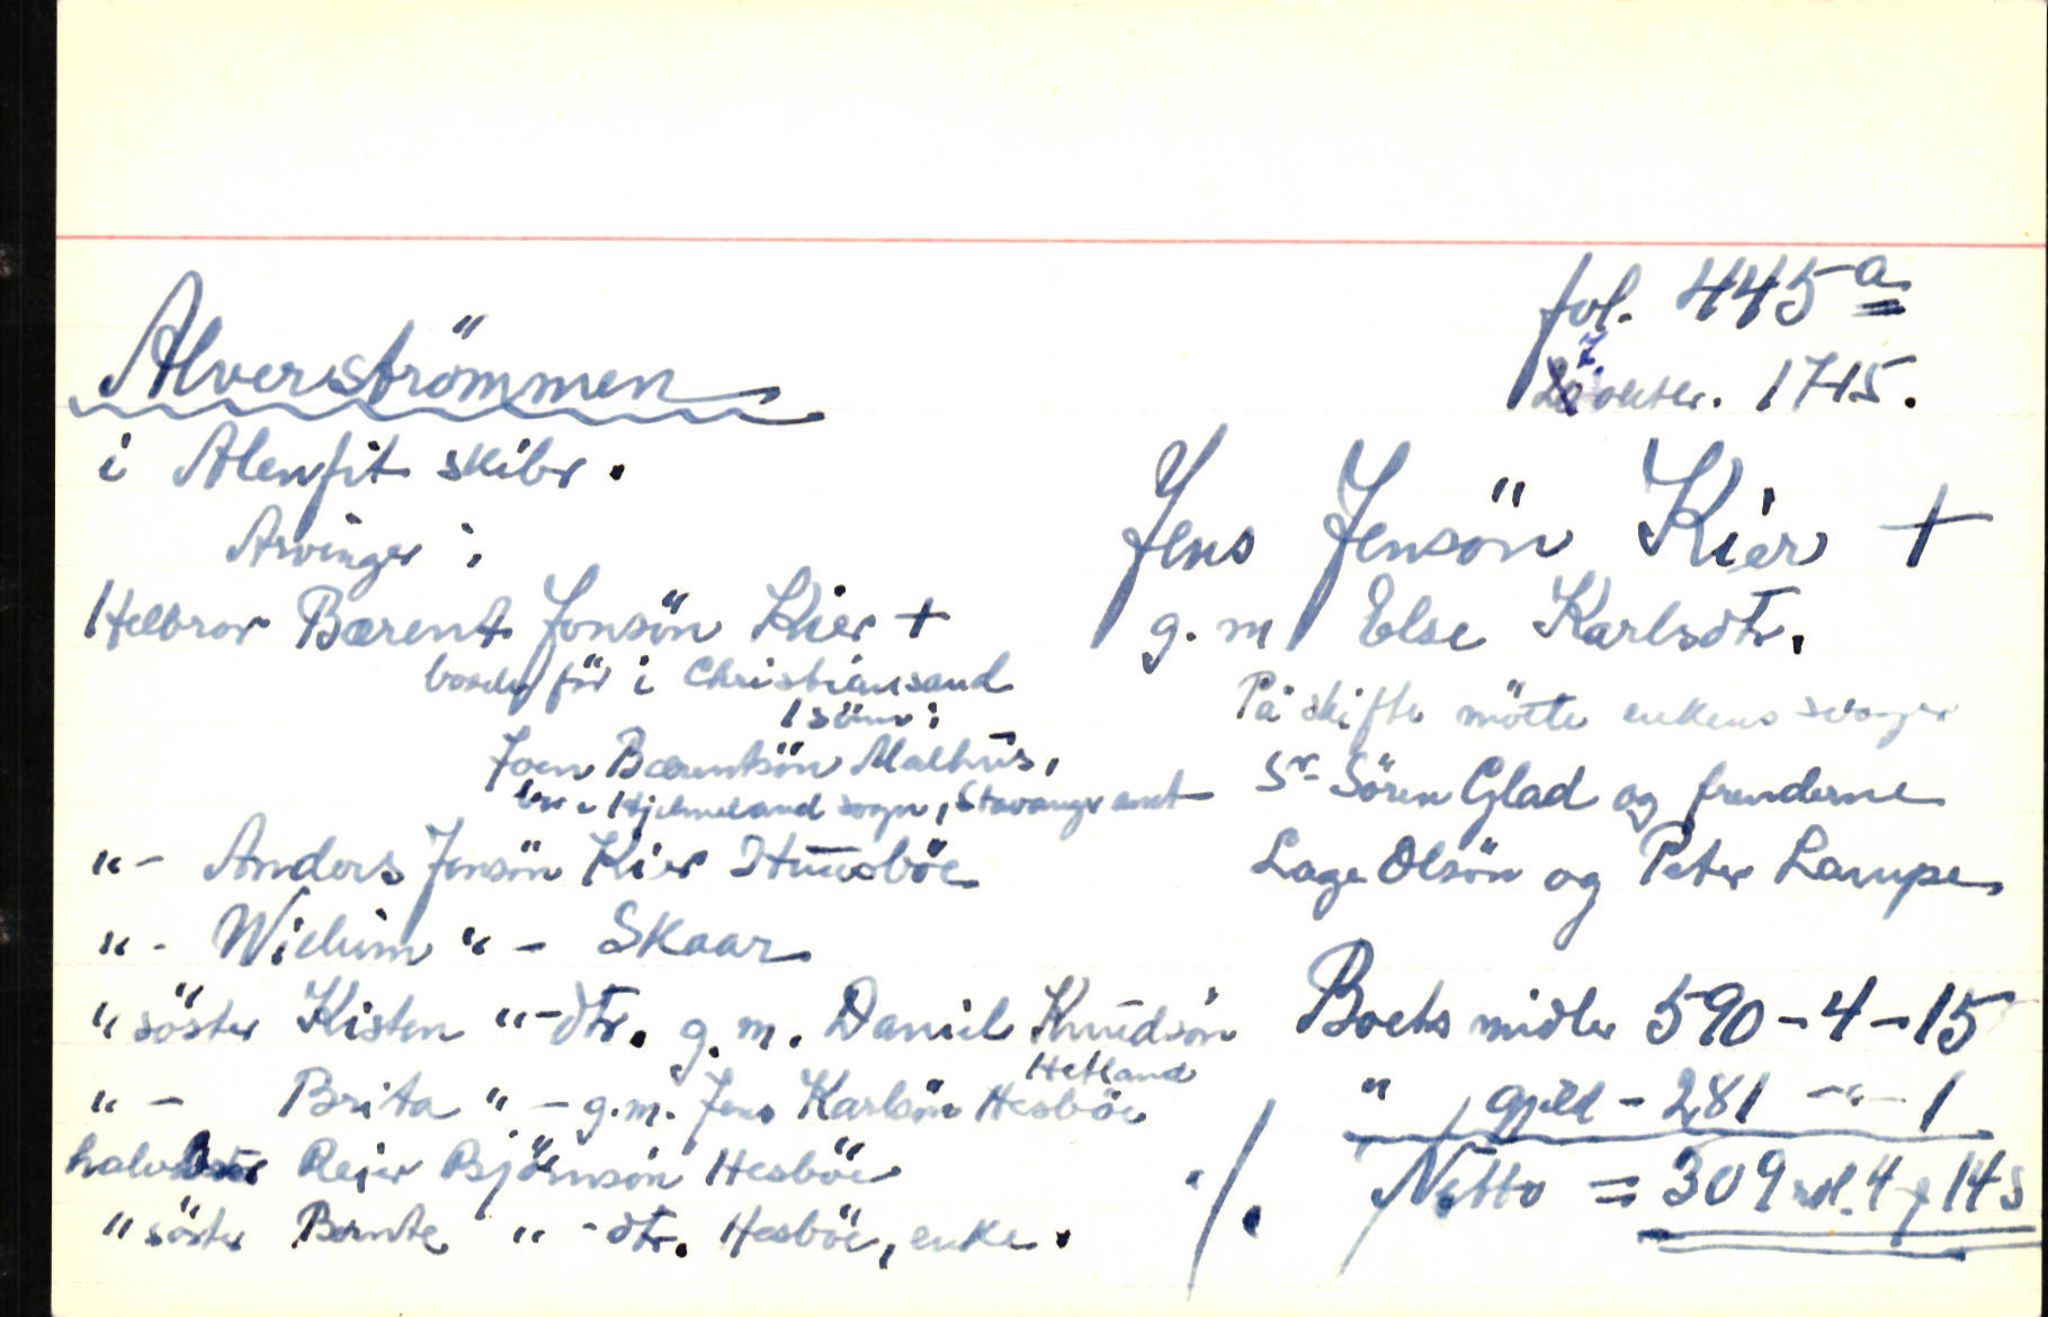 Alverströmmen
i Alenfit skibr.
Arvinger:
Helbror Bærent Jonsön Kier +
boede för i Christiansand
1 sönn:
Joen Bærentsön Malhūs,
bor i Hjelmeland sogn, Stavanger amt
"- Anders Jensön Kier Hūusböe
"- Wielum "- Skaar
" söster Kisten "-dtr. g.m. Daniel Knūdsön
Hetland
"- Brita "- g.m. Jens Karlsön Hesböe
halvbror Reier Björnsön Hesböe
" söster Bernte "-dtr. Hesböe, enke.
fol. 445 a
7 oktbr. 1715.
Jens Jensön Kier +
g.m Else Karlsdtr.
På skifte mötte enkens svoger
Sr Sören Glad og frenderne
Lage Olsön og Peter Lampe
Boets midler 590-4-15
" gjeld - 281 -"- 1
Netto = 309 rdl. 4 ƒ 14 s
./.